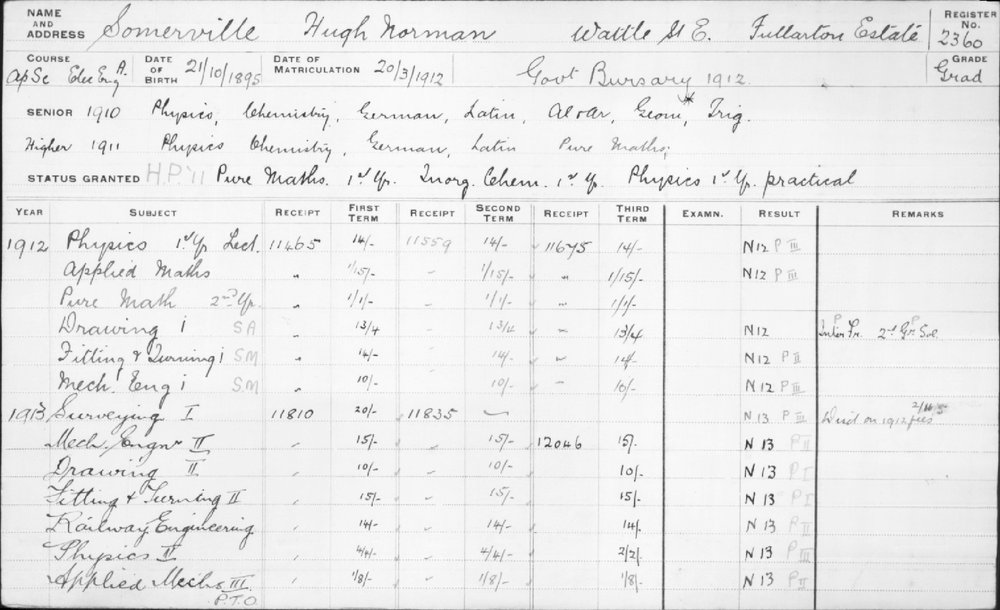 NAME AND ADDRESS Somerville Hugh Norman Wattle St E. Fullarton Estate REGISTER No. 2360
COURSE ApSc Elec Eng A. DATE OF BIRTH 21/10/1895 DATE OF MATRICULATION 20/3/1912 Govt Bursary 1912. GRADE Grad
SENIOR 1910 Physics, Chemistry, German, Latin, Geom,* Trig.
Higher 1911 Physics Chemistry, German, Latin Pure Maths;
STATUS GRANTED H.P. '11 Pure Maths. 1st Yr. Inorg. Chem. 1st Yr. Physics 1st Yr. practical
YEAR SUBJECT RECEIPT FIRST TERM RECEIPT SECOND TERM RECEIPT THIRD TERM EXAMN. RESULT REMARKS
1912 Physics 1st Yr Lect. 11465 14/- 11559 14/- 11675 14/- N12 P III
Applied Maths " 1/15/- " 1/15/- " 1/15/- N12 P III
Pure Math 2nd Yr. " 1/1/- " 1/1/- " 1/1/-
Drawing i SA " 13/4 " 13/4 " 13/4 N12 2nd Gr
Fitting & Turning i SM " 14/- " 14/- " 14/- N12 P II
Mech. Eng i SM " 10/- " 10/- " 10/- N12 P III
1913 Surveying I 11810 20/- 11835 N 13 P III on 1912 fees
Mech. Engr II " 15/- " 15/- 12046 15/- N 13 P II
Drawing II " 10/- " 10/- 10/- N 13 P I
Fitting & Turning II " 15/- " 15/- 15/- N 13 P I
Railway Engineering 14/- 14/- 14/- N 13 P II
Physics II " 4/4/- " 4/4/- 2/2/- N 13 P III
Applied Mechs III " 1/8/- " 1/8/- 1/8/- N 13 P II
P.T.O.